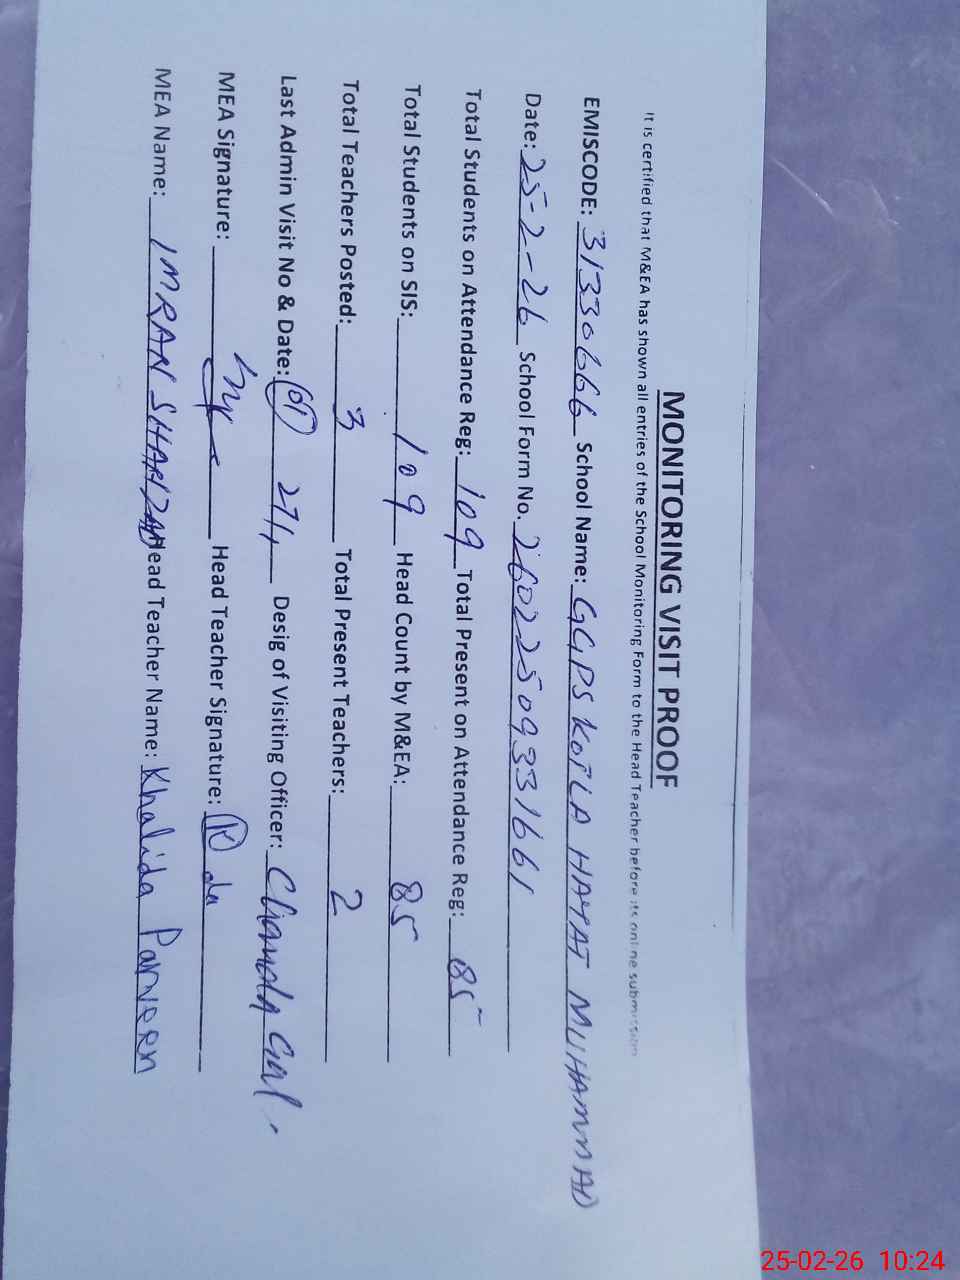 MONITORING VISIT PROOF
It is certified that M&EA has shown all entries of the School Monitoring Form to the Head Teacher before its online submission
EMISCODE: 31330666 School Name: GGPS KOTLA HAYAT MUHAMMAD
Date: 25-2-26 School Form No. 26022509331661
Total Students on Attendance Reg: 109 Total Present on Attendance Reg: 85
Total Students on SIS: 109 Head Count by M&EA: 85
Total Teachers Posted: 3 Total Present Teachers: 2
Last Admin Visit No & Date: 01 Desig of Visiting Officer:
MEA Signature: Head Teacher Signature:
MEA Name: IMRAN SHAHZAD Head Teacher Name: Khalida Parveen
25-02-26 10:24